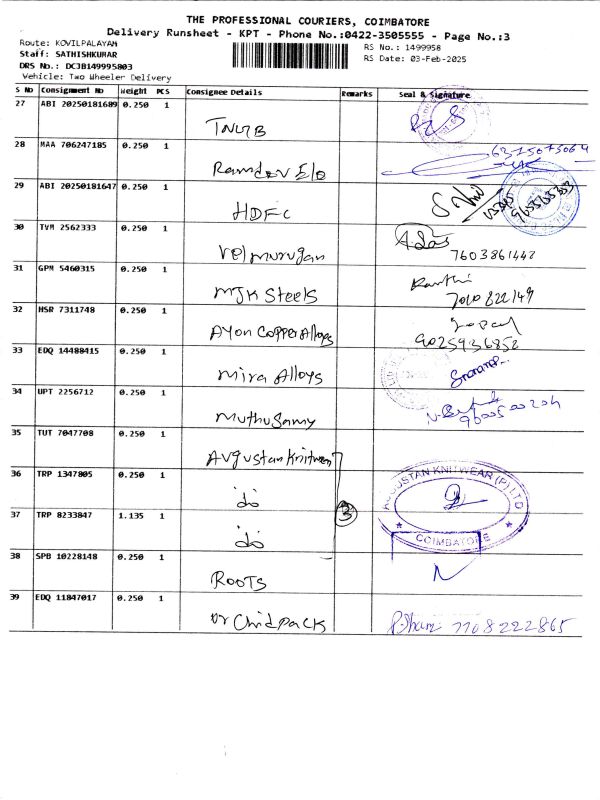 THE PROFESSIONAL COURIERS, COIMBATORE
Delivery Runsheet - KPT - Phone No.:0422-3505555 - Page No.:3
Route: KOVILPALAYAM
RS No.: 1499958
Staff: SATHISHKUMAR
RS Date: 03-Feb-2025
DRS No.: DCJB149995803
Vehicle: Two Wheeler Delivery
S No Consignment No Weight PCS Consignee Details Remarks Seal & Signature
27 ABI 20250181689 0.250 1
TNUB
28 MAA 706247185 0.250 1
Ramdev Ele
29 ABI 20250181647 0.250 1
HDFC
30 TVM 2562333 0.250 1
Velmurugan
7603861442
31 GPM 5460315 0.250 1
MJK Steels
7010822149
32 HSR 7311748 0.250 1
Ayon Copper Alloys
9025936852
33 EDQ 14488415 0.250 1
Mira Alloys
34 UPT 2256712 0.250 1
Muthusamy
35 TUT 7047708 0.250 1
Avgustan Knitwear
36 TRP 1347805 0.250 1
do
AUGUSTAN KNITWEAR (P) LTD
COIMBATORE
37 TRP 8233847 1.135 1
do
3
38 SPB 10228148 0.250 1
ROOTS
39 EDQ 11847017 0.250 1
Dr Chidpack
7708222865